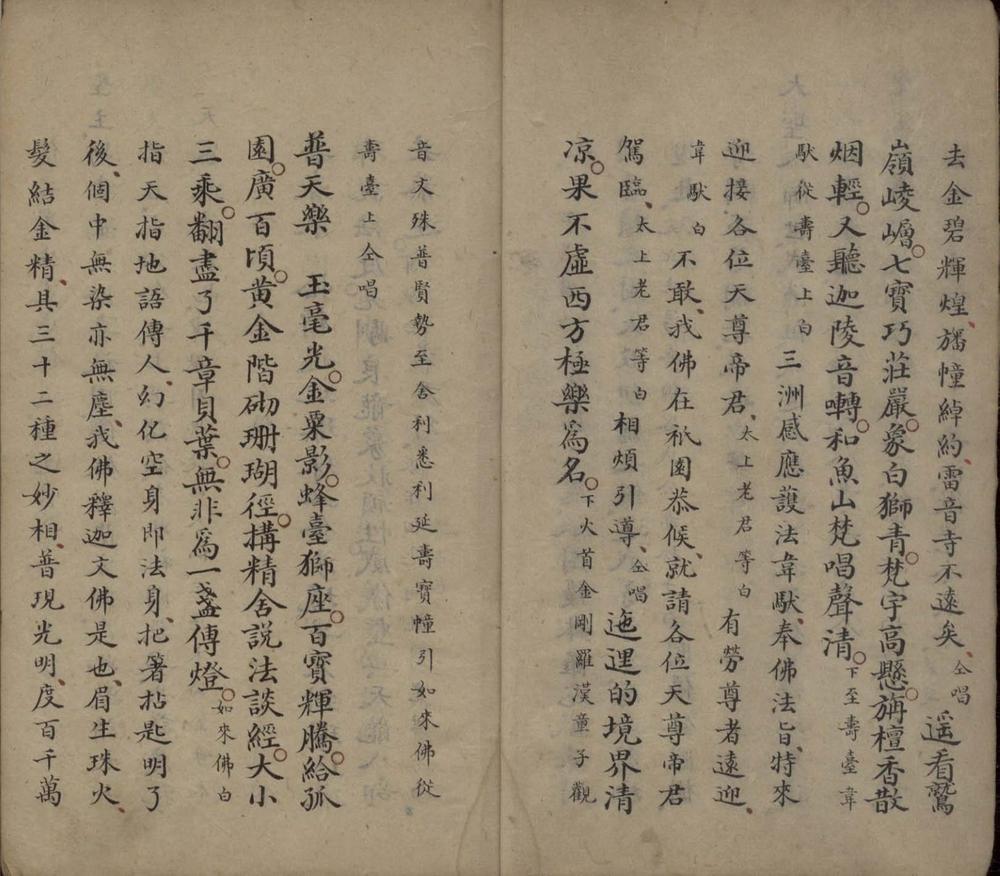 去金碧輝煌旛幢綽約雷音寺不遠矣仝唱遥看鷲
嶺崚嶒七寶巧莊嚴象白獅青梵宇高懸旃檀香散
烟輕又聽迦陵音囀和魚山梵唱聲清下至壽臺韋
馱從壽臺上白三洲感應護法韋馱奉佛法旨特來
迎接各位天尊帝君太上老君等白有勞尊者遠迎
韋馱白不敢我佛在祇園恭候就請各位天尊帝君
駕臨太上老君等白相煩引導仝唱迤逗的境界清
凉果不虛西方極樂爲名下火首金剛羅漢童子觀
音文殊普賢勢至舍利悉利延壽寶幢引如來佛從
壽臺上仝唱
普天樂 玉毫光金粟影蜂臺獅座百寶輝騰給孤
園廣百頃黃金階砌珊瑚徑搆精舍說法談經大小
三乘翻盡了千章貝葉無非爲一盞傳燈如來佛白
指天指地語傳人幻化空身即法身把箸拈匙明了
後個中無染亦無塵我佛釋迦文佛是也眉生珠火
髮結金精具三十二種之妙相普現光明度百千萬